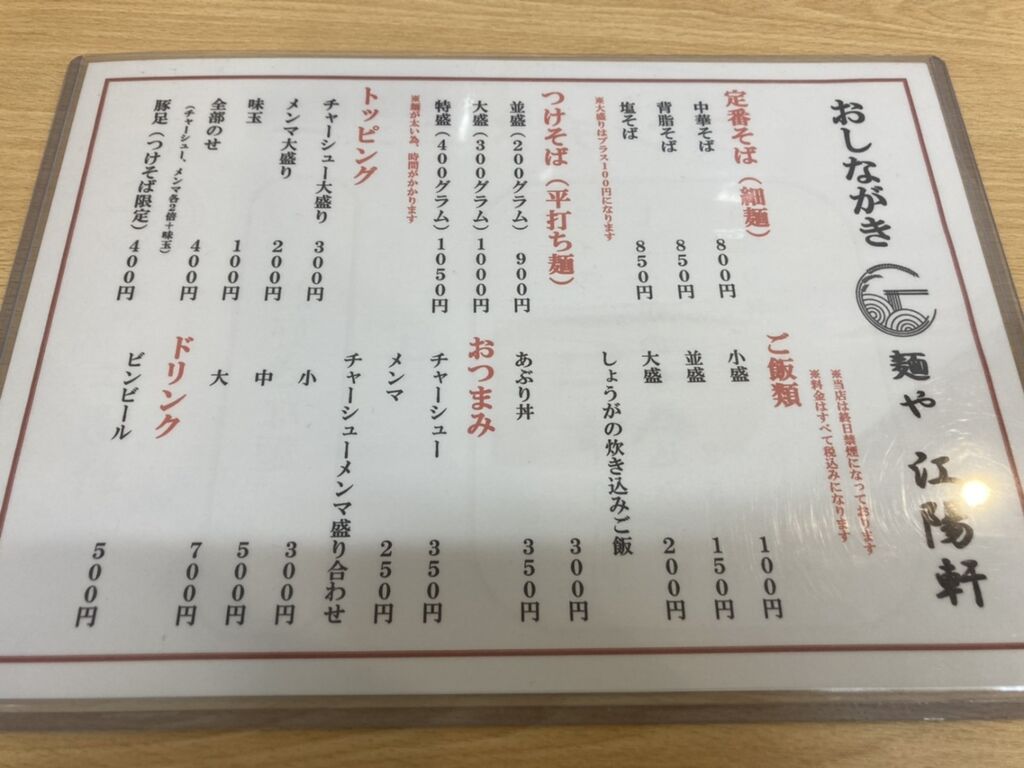 おしながき
麺や 江陽軒
※当店は終日禁煙になっております
※料金はすべて税込みになります
定番そば（細麺）
中華そば 800円
背脂そば 850円
塩そば 850円
※大盛りはプラス100円になります
つけそば（平打ち麺）
並盛（200グラム） 900円
大盛（300グラム） 1000円
特盛（400グラム） 1050円
※麺が太い為、時間がかかります
トッピング
チャーシュー大盛り 300円
メンマ大盛り 200円
味玉 100円
全部のせ 400円
（チャーシュー、メンマ各2倍＋味玉）
豚足（つけそば限定） 400円
ご飯類
小盛 100円
並盛 150円
大盛 200円
しょうがの炊き込みご飯 300円
あぶり丼 350円
おつまみ
チャーシュー 350円
メンマ 250円
チャーシューメンマ盛り合わせ
小 300円
中 500円
大 700円
ドリンク
ビンビール 500円